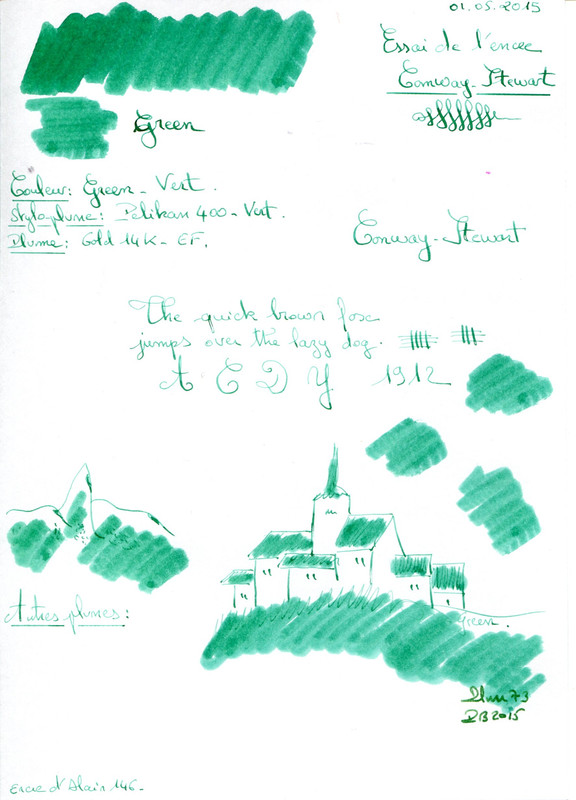 01.05.2015
Essai de l'encre
Conway-Stewart
Green
Couleur: Green - Vert.
Stylo plume: Pelikan 400 - Vert.
Plume: Gold 14K - EF.
Conway-Stewart
The quick brown fox
jumps over the lazy dog.
A C D Y 1912
Autres plumes:
Green.
Plum73
DB2015
Encre d'Alain 146-